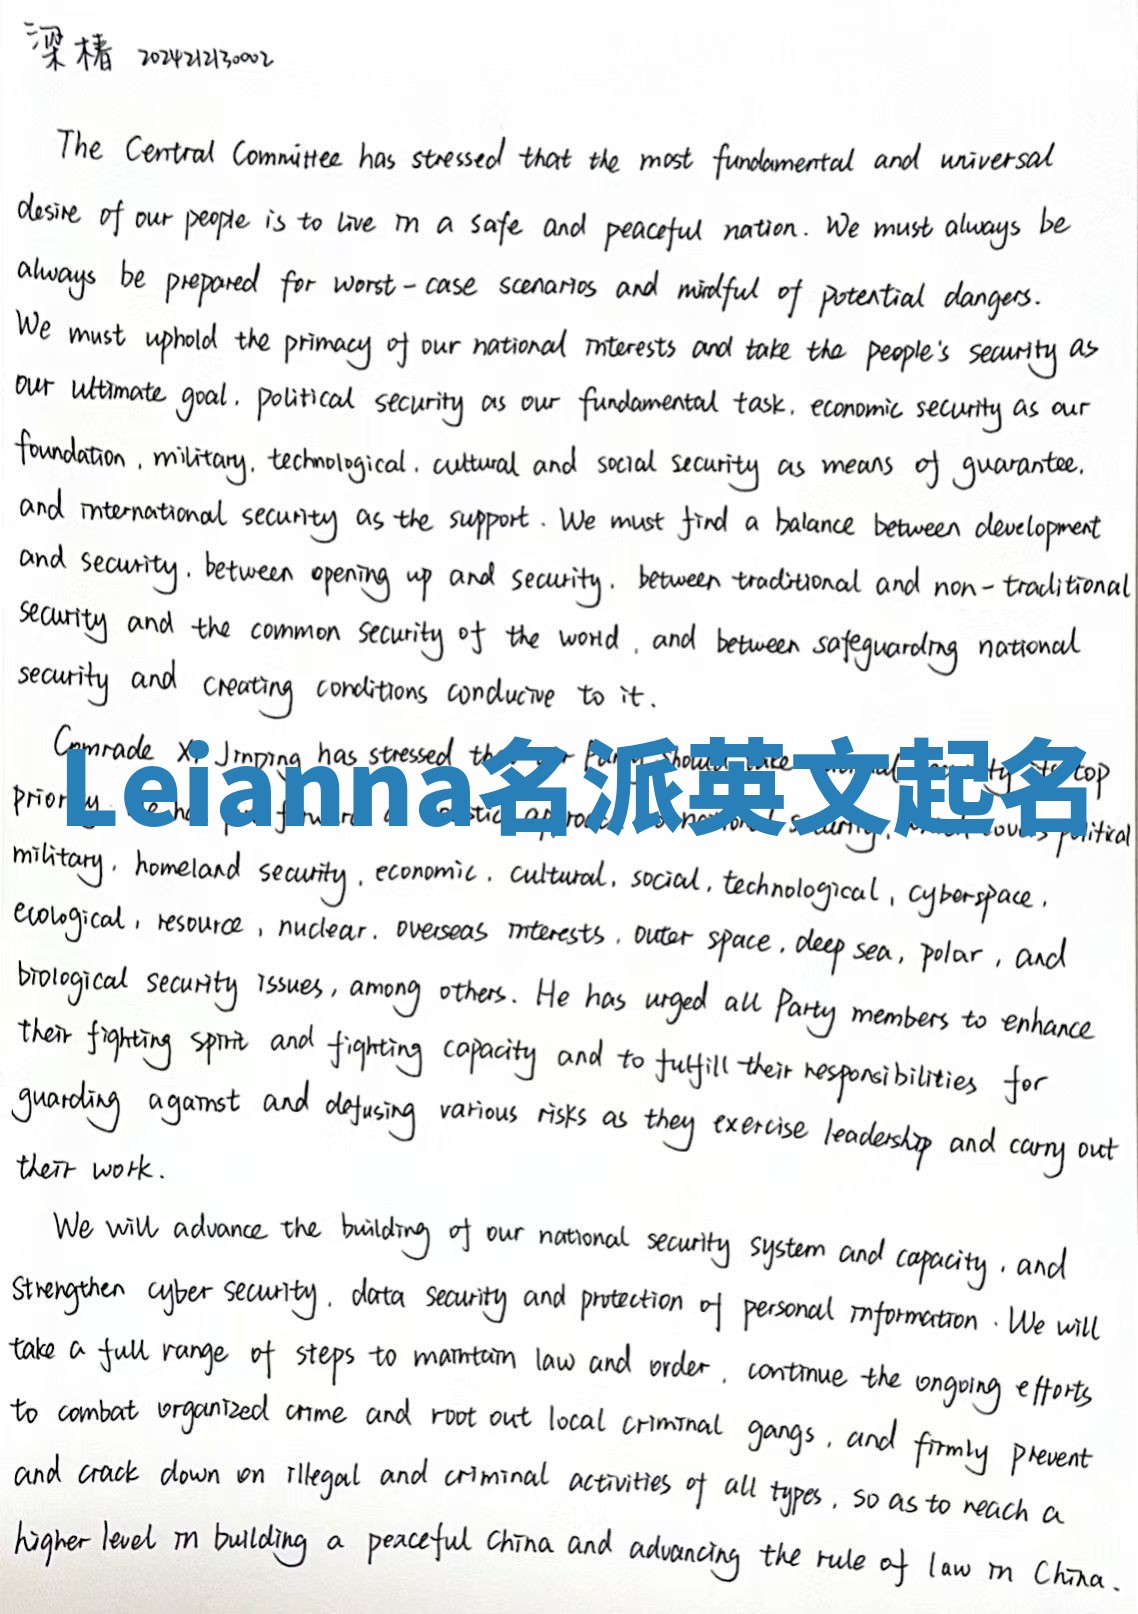 梁椿 2024212130002
The Central Committee has stressed that the most fundamental and universal
desire of our people is to live in a safe and peaceful nation. We must always be
always be prepared for worst-case scenarios and mindful of potential dangers.
We must uphold the primacy of our national interests and take the people's security as
our ultimate goal, political security as our fundamental task, economic security as our
foundation, military, technological, cultural and social security as means of guarantee,
and international security as the support. We must find a balance between development
and security, between opening up and security, between traditional and non-traditional
security and the common security of the world, and between safeguarding national
security and creating conditions conducive to it.
Comrade Xi Jinping has stressed top
Leianna名派英文起名
political
military, homeland security, economic, cultural, social, technological, cyberspace,
ecological, resource, nuclear, overseas interests, outer space, deep sea, polar, and
biological security issues, among others. He has urged all Party members to enhance
their fighting spirit and fighting capacity and to fulfill their responsibilities for
guarding against and defusing various risks as they exercise leadership and carry out
their work.
We will advance the building of our national security system and capacity, and
strengthen cyber security, data security and protection of personal information. We will
take a full range of steps to maintain law and order, continue the ongoing efforts
to combat organized crime and root out local criminal gangs, and firmly prevent
and crack down on illegal and criminal activities of all types, so as to reach a
higher level in building a peaceful China and advancing the rule of law in China.